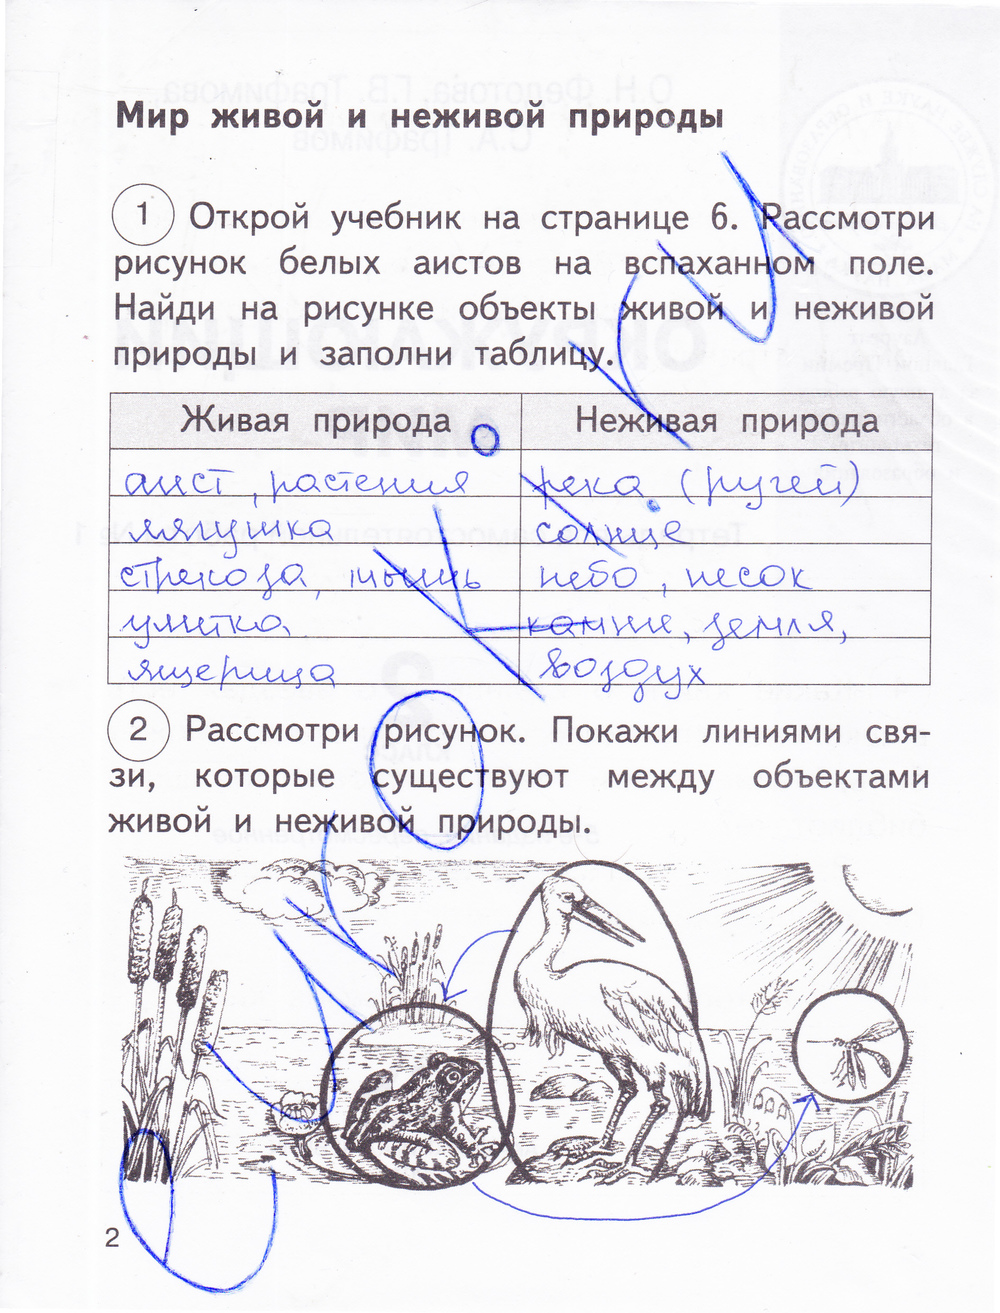 Мир живой и неживой природы
1 Открой учебник на странице 6. Рассмотри
рисунок белых аистов на вспаханном поле.
Найди на рисунке объекты живой и неживой
природы и заполни таблицу.
Живая природа Неживая природа
аист, растения река (ручей)
лягушка солнце
стрекоза, мышь небо, песок
улитка камни, земля,
ящерица воздух
2 Рассмотри рисунок. Покажи линиями свя-
зи, которые существуют между объектами
живой и неживой природы.
2